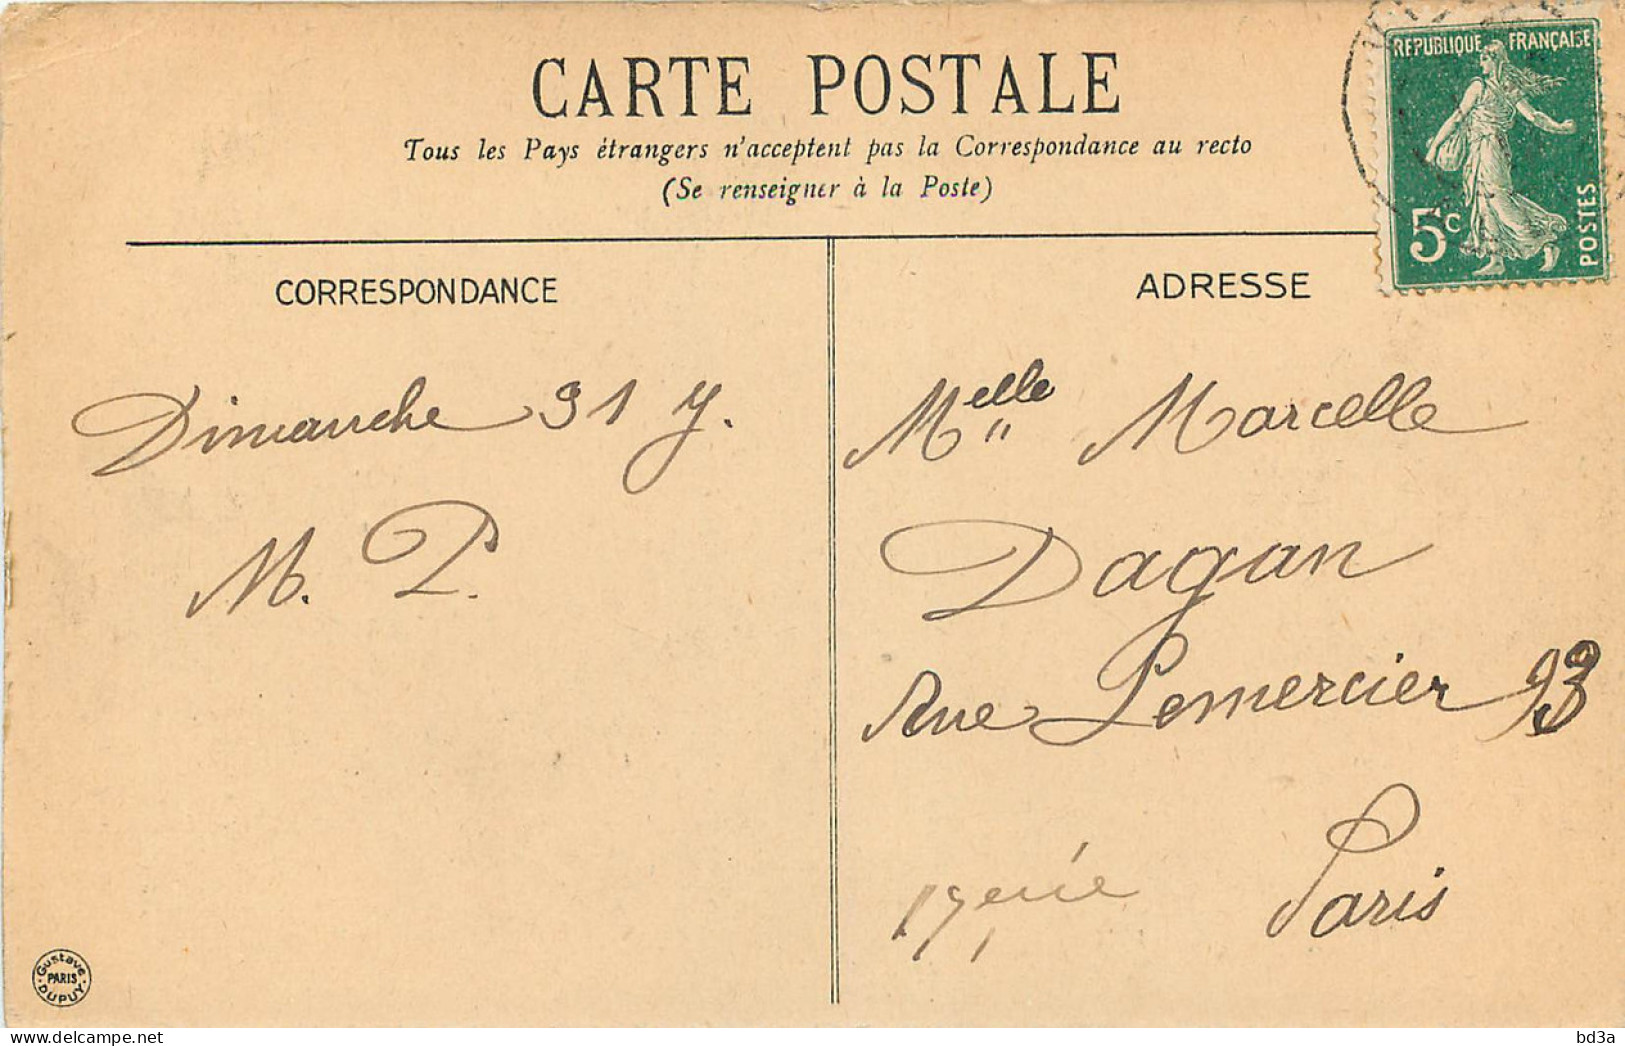 CARTE POSTALE
Tous les Pays étrangers n'acceptent pas la Correspondance au recto
(Se renseigner à la Poste)
REPUBLIQUE FRANÇAISE
5c
POSTES
CORRESPONDANCE
ADRESSE
Dimanche 31 J.
M. P.
Melle Marcelle
Dagan
Rue Lemercier 93
Paris
17eme
Gustave
PARIS
DUPUY
bd3a